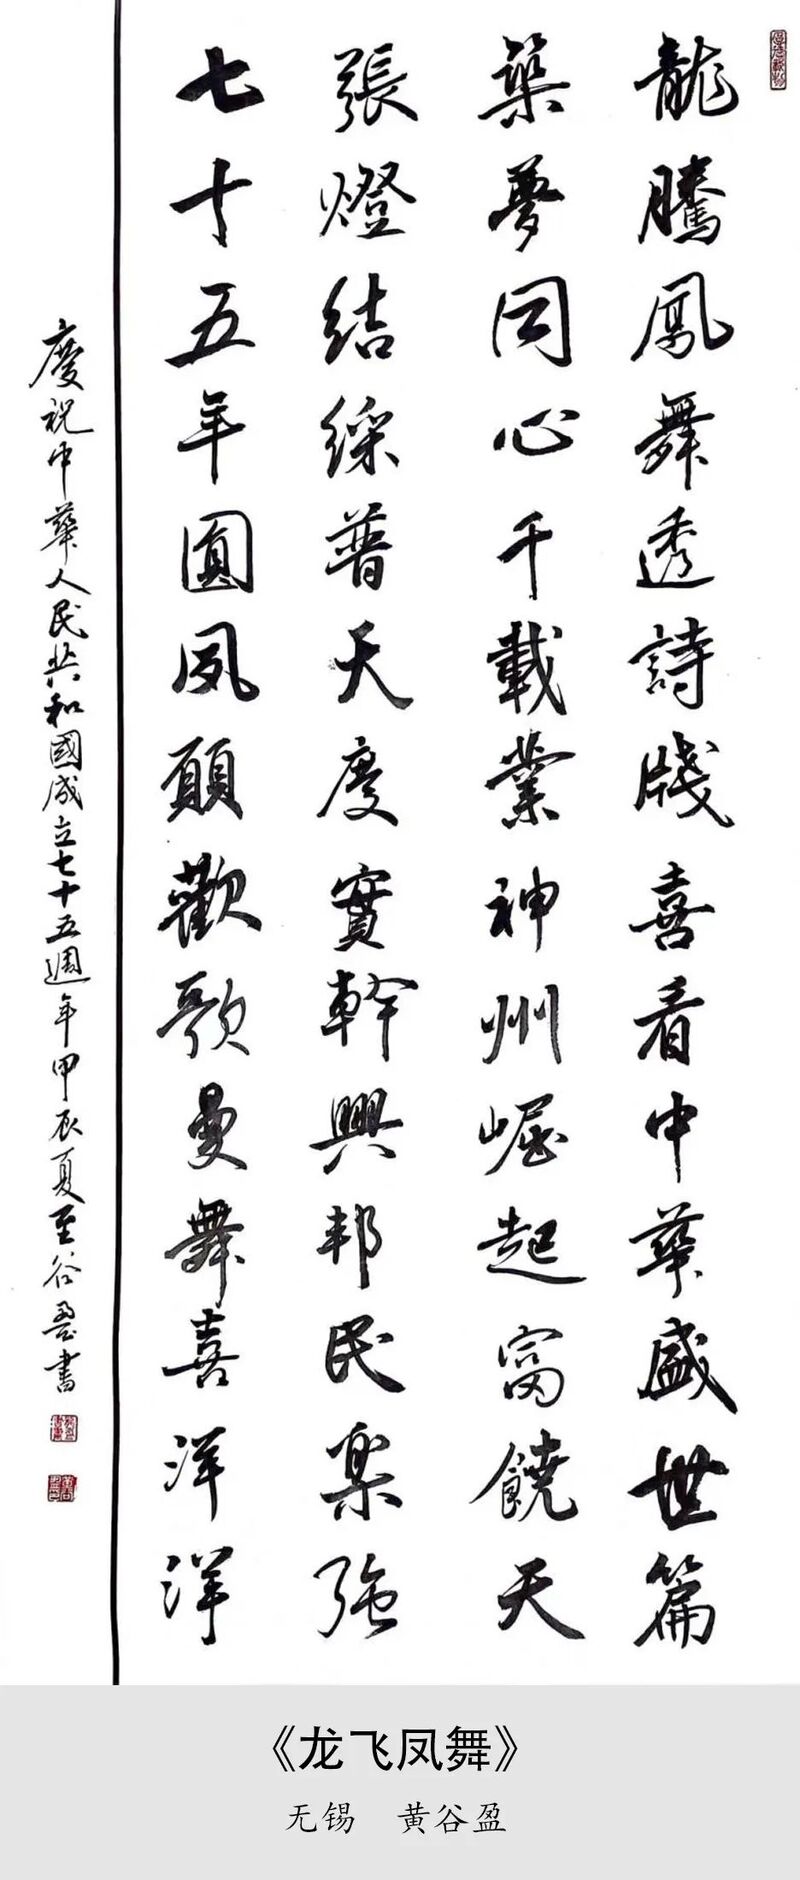 龍騰鳳舞透詩牋喜看中華盛世篇
築夢同心千載業神州崛起富饒天
張燈結綵普天慶實幹興邦民樂強
七十五年圓夙願歡歌曼舞喜洋洋
慶祝中華人民共和國成立七十五週年甲辰夏至谷盈書
《龙飞凤舞》
无锡 黄谷盈